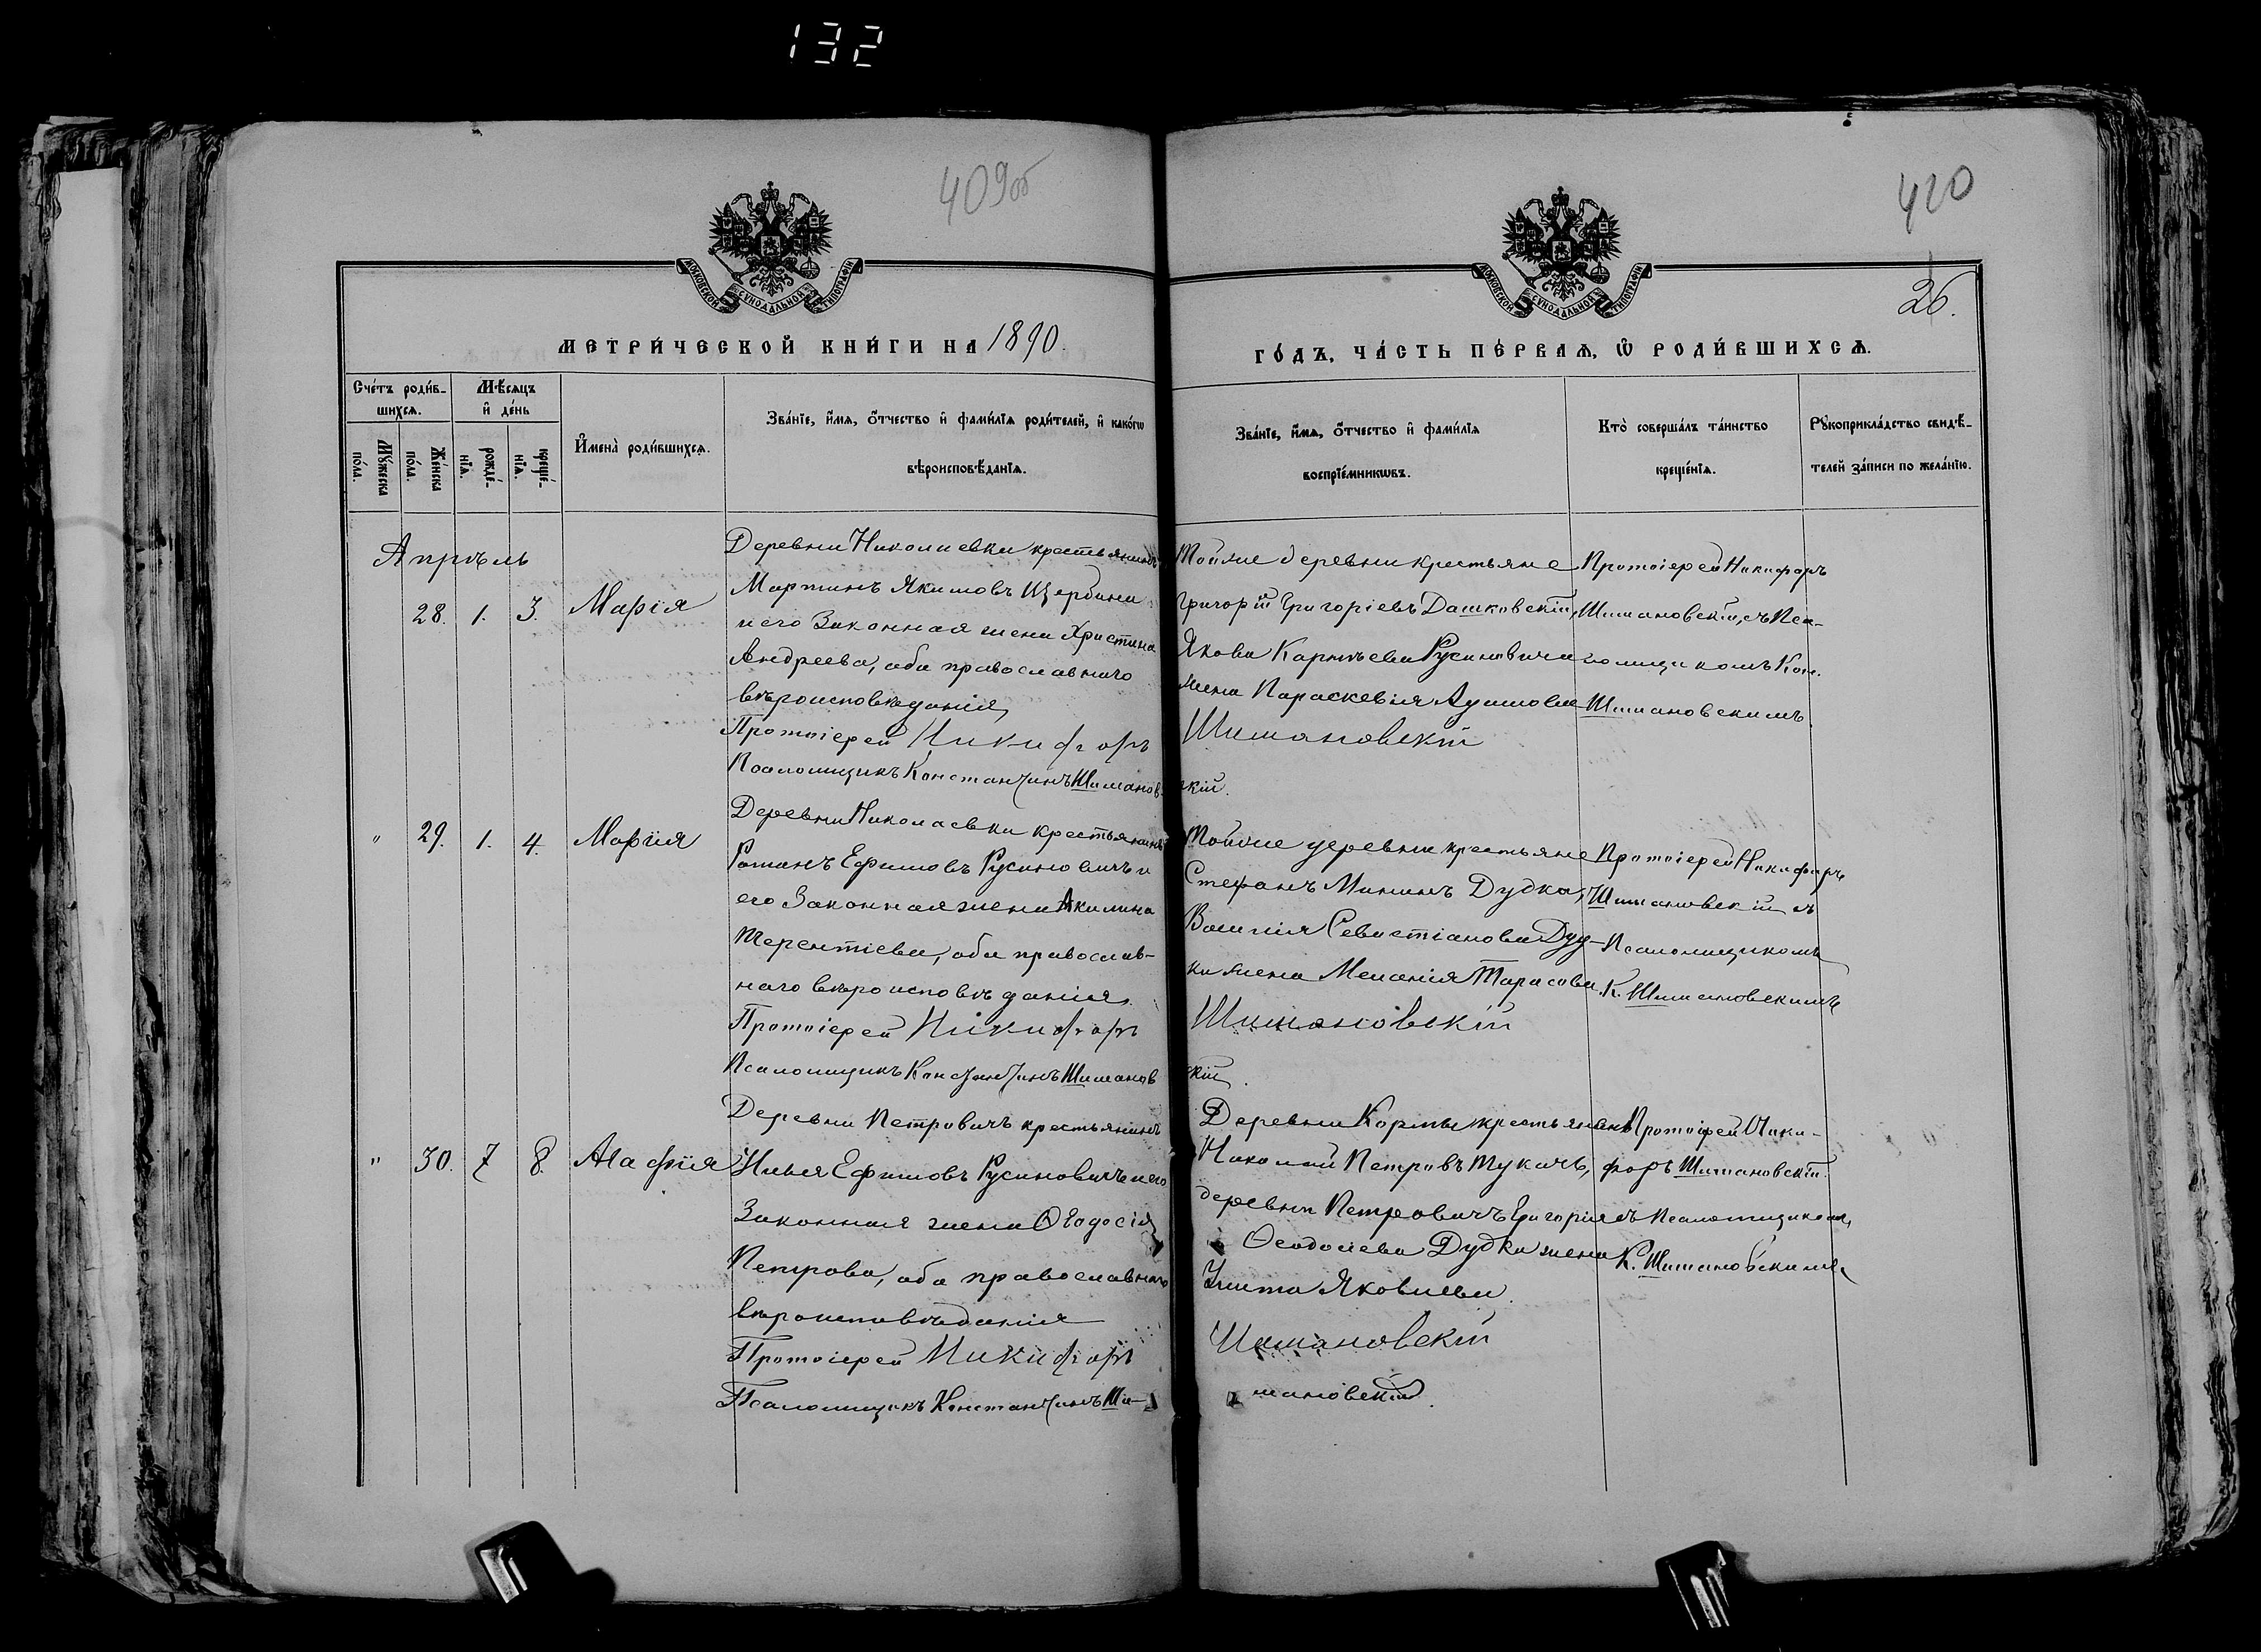 132
409об
420
26.
МОСКОВСКОЙ СѴНОДАЛЬНОЙ ТИПОГРАФІИ
МОСКОВСКОЙ СѴНОДАЛЬНОЙ ТИПОГРАФІИ
МЕТРИ́ЧЕСКОЙ КНИ́ГИ НА 1890.
ГО́ДЪ, ЧА́СТЬ ПЕ́РВАѦ, Ѽ РОДИ́ВШИХСѦ.
Сче́тъ роди́в-
шихсѧ.
Мѣ́сяцъ
и҆ де́нь
Мꙋ́жеска
по́ла.
Же́нска
по́ла.
рожде́-
нїѧ.
креще́-
нїѧ.
И҆мена̀ роди́вшихсѧ.
Зва́нїе, и҆́мѧ, о҆́тчество и҆ фами́лїѧ роди́телей, и҆ како́гѡ
вѣроисповѣ́данїѧ.
Зва́нїе, и҆́мѧ, о҆́тчество и҆ фами́лїѧ
воспрїе́мникѡвъ.
Кто̀ соверша́лъ та́инство
креще́нїѧ.
Рꙋкоприкла́дство свидѣ́-
телей за́писи по жела́нїю.
Апрѣль
28. 1. 3. Марія
Деревни Николаевки крестьянинъ
Мартинъ Якимовъ Щербина
и его Законная жена Христина
Андреева, оба православнаго
вѣроисповѣданія,
Протоіерей Никифоръ
Псаломщикъ Константинъ Шиманов-
Тойже деревни крестьяне
Григорій Григоріевъ Дашковскій,
Якова Русиновича
жена Параскевія
Шимановскій
скій.
Протоіерей Никифоръ
Шимановскій, съ Пса-
ломщикомъ Кон.
Шимановскимъ.
" 29. 1. 4. Марія
Деревни Николаевки крестьянинъ
Романъ Ефимовъ Русиновичъ и
его Законная жена Акилина
Терентіева, оба православ-
наго вѣроисповѣданія.
Протоіерей Никифоръ
Псаломщикъ Константинъ Шиманов
Тойже деревни крестьяне
Стефанъ Мининъ Дудка,
Василія Севастіанова Дуд-
ки жена Меланія Тарасова.
Шимановскій
скій.
Протоіерей Никифоръ
Шимановскій съ
Псаломщикомъ
К. Шимановскимъ
" 30. 7 8.
Деревни Петровичъ крестьянинъ
Илья Ефимовъ Русиновичъ и его
Законная жена Ѳеодосія
Петрова, оба православнаго
вѣроисповѣданія
Протоіерей Никифоръ
Псаломщикъ Константинъ Ши-
Деревни Кормы крестьянинъ
Николай Петровъ Тукачъ,
деревни Петровичъ Григорія
Ѳеодосіева Дудки жена
Улита Яковлева.
Шимановскій
мановскій.
Протоіерей Ники-
форъ Шимановскій
съ Псаломщикомъ
К. Шимановскимъ